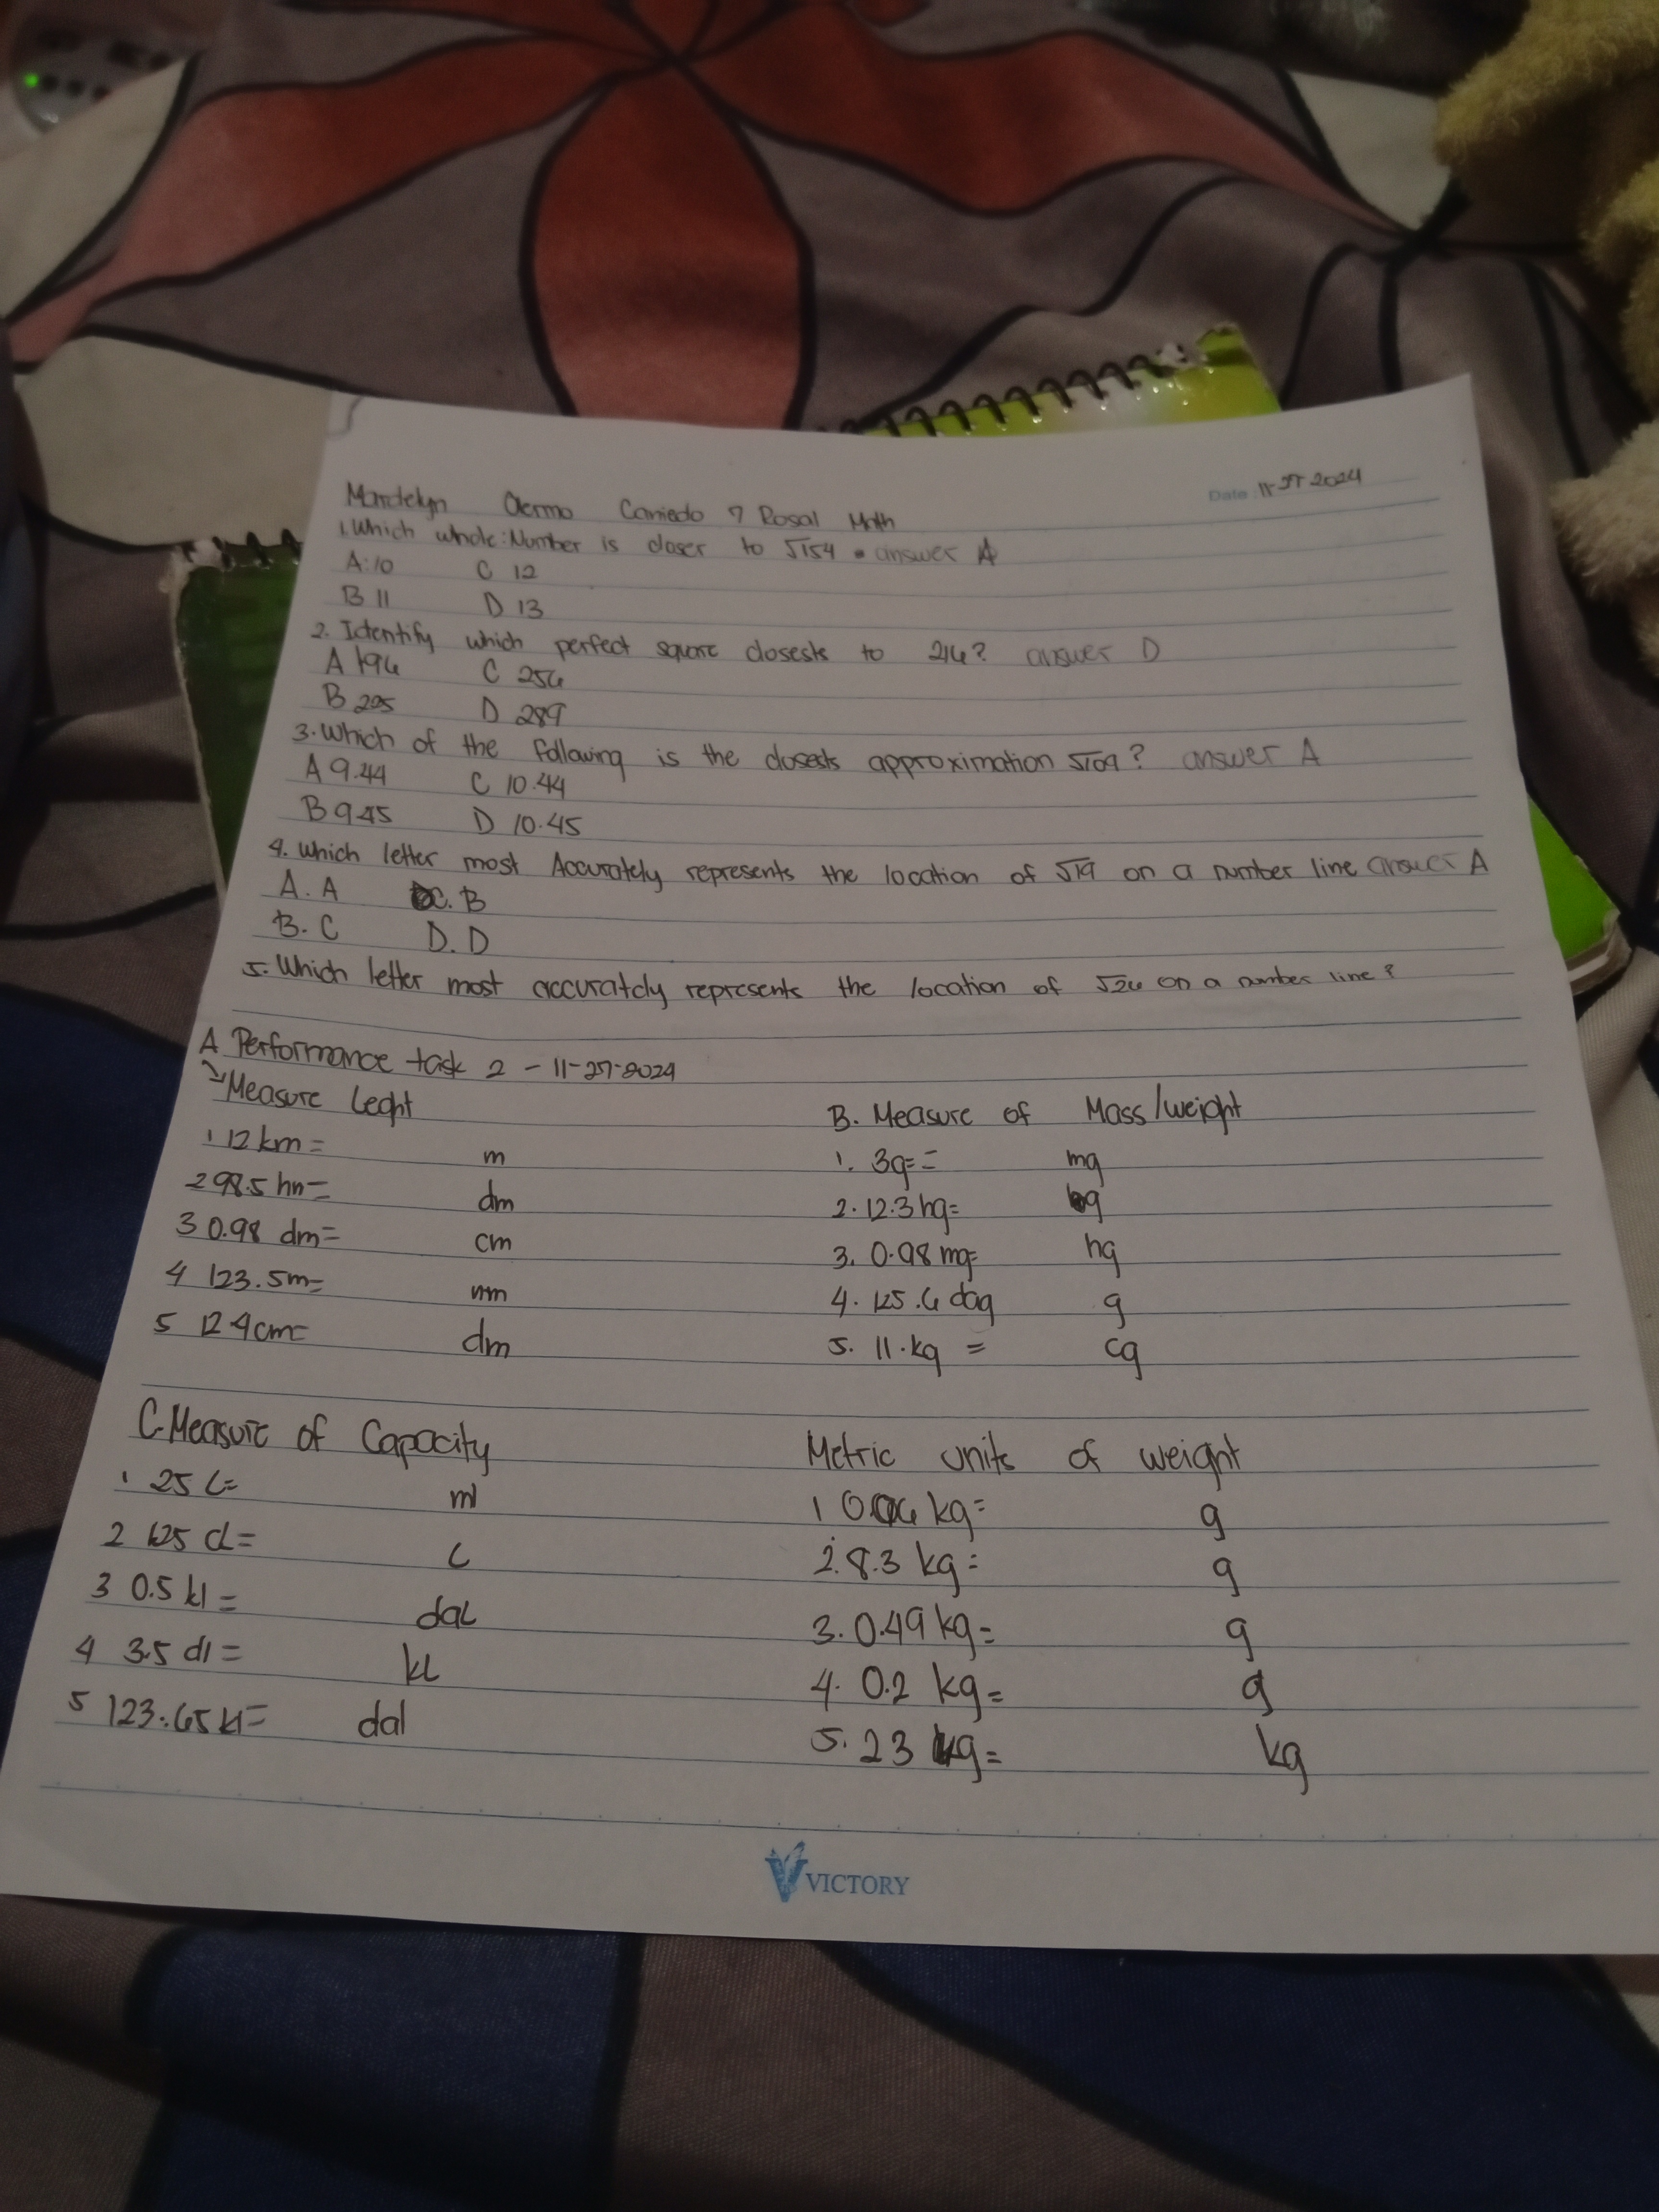 Date: 11-27 2024
Mardelyn Olermo Caniedo 7 Rosal Math
1. Which whole: Number is closer to √154 answer A
A: 10 C 12
B 11 D 13
2. Identify which perfect square closests to 216? answer D
A 196 C 256
B 225 D 289
3. Which of the following is the closests approximation √109? answer A
A 9.44 C 10.44
B 9.45 D 10.45
4. Which letter most Accurately represents the location of √19 on a number line answer A
A. A C. B
B. C D. D
5. Which letter most accurately represents the location of √26 on a number line?
A Performance task 2 - 11-27-2024
Measure Leght
1 12 km = m
2 98.5 hm = dm
3 0.98 dm = cm
4 123.5m = mm
5 124cm = dm
B. Measure of Mass/weight
1. 3g = = mg
2. 12.3 hg = g
3. 0.98 mg = hg
4. 125.6 dag g
5. 11.kg = cg
C. Measure of Capacity
1 25 L = ml
2 625 cl = L
3 0.5 kl = daL
4 3.5 dl = kL
5 123.65 kl = dal
Metric units of weight
1 kg = g
2. 8.3 kg = g
3. 0.49 kg = g
4. 0.2 kg = g
5. 23 kg = kg
VICTORY